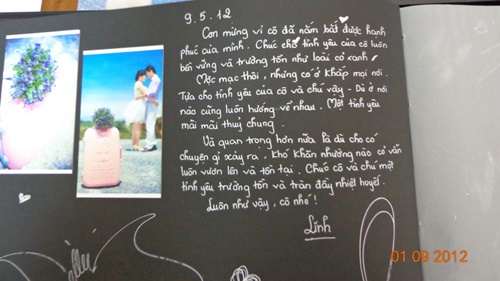 9.5.12
Con mừng vì cô đã nắm bắt được hạnh
phúc của mình. Chúc cho tình yêu của cô luôn
bền vững và trường tồn như loài cỏ xanh.
Mộc mạc thôi, nhưng có ở khắp mọi nơi.
Tựa cho tình yêu của cô và chú vậy - Dù ở nơi
nào cũng luôn hướng về nhau. Một tình yêu
mãi mãi thuỷ chung.
Và quan trọng hơn nữa là dù cho có
chuyện gì xảy ra. Khó khăn nhường nào cỏ vẫn
luôn vươn lên và tồn tại. Chúc cô và chú một
tình yêu trường tồn và tràn đầy nhiệt huyết.
Luôn như vậy, cô nhé!
Linh
01 09 2012